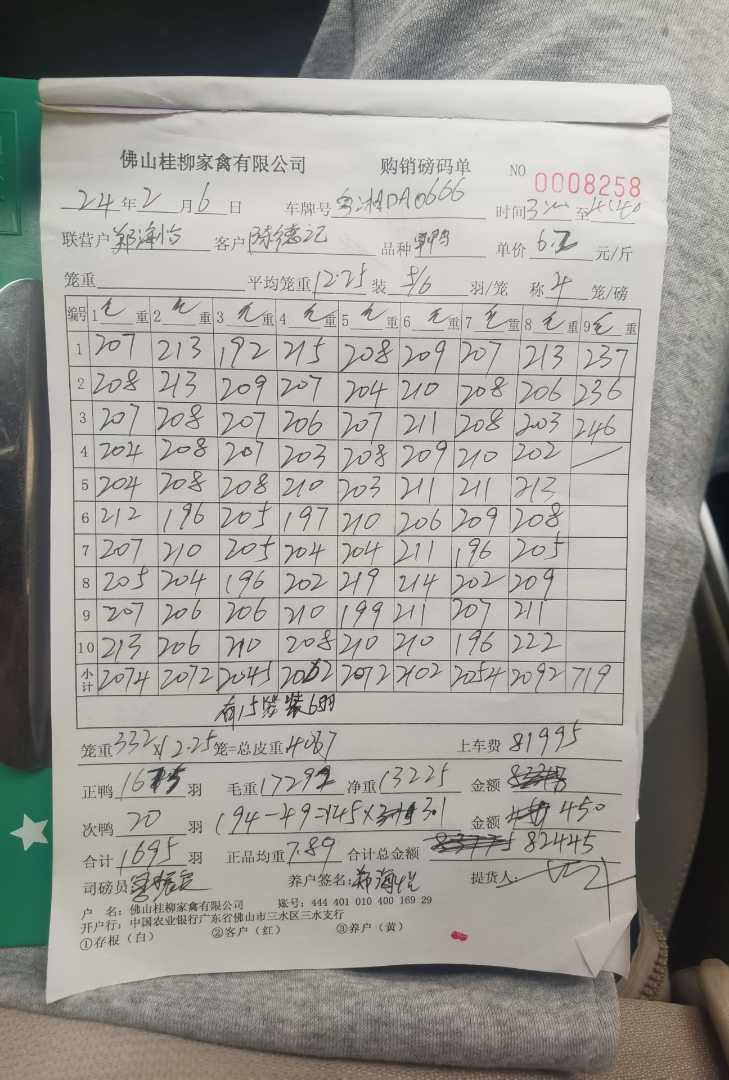 佛山桂柳家禽有限公司 购销磅码单 NO 0008258
24年2月6日 车牌号 DA0666 时间 3 至
联营户 郑海怡 客户 陈德记 品种 单价 6.2 元/斤
笼重 平均笼重 12.25 装 5/6 羽/笼 称 4 笼/磅
编号 1毛重 2毛重 3毛重 4毛重 5毛重 6毛重 7毛重 8毛重 9毛重
1 207 213 192 215 208 209 207 213 237
2 208 213 209 207 204 210 208 206 236
3 207 208 207 206 207 211 208 203 246
4 204 208 207 203 208 209 210 202
5 204 208 208 210 203 211 211 213
6 212 196 205 197 210 206 209 208
7 207 210 205 204 204 211 196 205
8 205 204 196 202 219 214 202 209
9 207 206 206 210 199 211 207 211
10 213 206 210 208 210 210 196 222
小计 2074 2072 2045 2062 2072 2102 2054 2092 719
有15笼装6羽
笼重 332×12.25 笼=总皮重 4067 上车费 81995
正鸭 1675 羽 毛重 17292 净重 13225 金额
次鸭 20 羽 194-49=145× 3.1 金额 450
合计 1695 羽 正品均重 7.89 合计总金额 82445
司磅员 养户签名: 郑海怡 提货人:
户 名: 佛山桂柳家禽有限公司 账号: 444 401 010 400 169 29
开户行: 中国农业银行广东省佛山市三水区三水支行
①存根（白） ②客户（红） ③养户（黄）